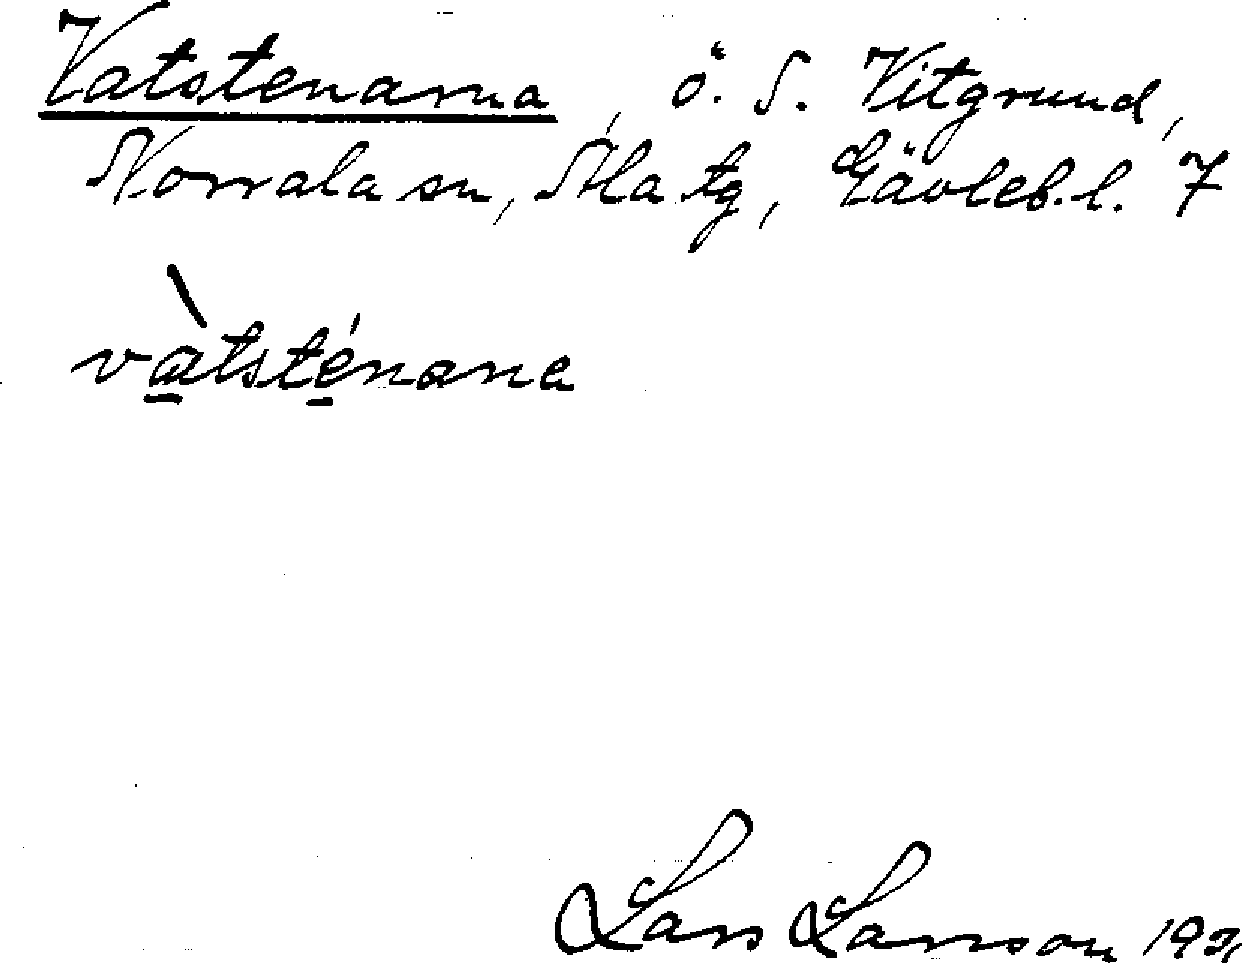 Vatstenarna, ö. S. Vitgrund,
Norrala sn, Ala tg, Gävleb. l. 7
vàtsténana
Lars Larsson